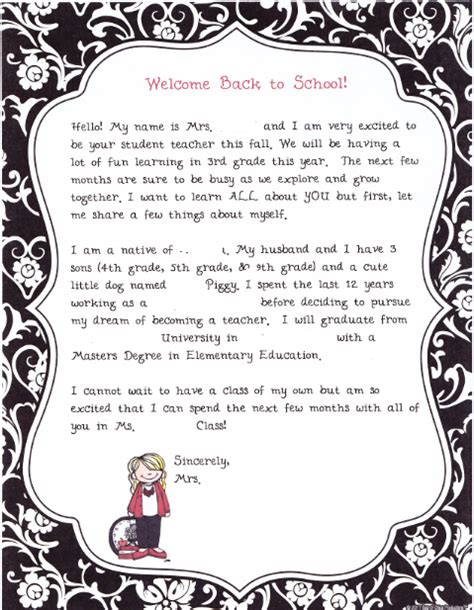 Welcome Back to School!
Hello! My name is Mrs. and I am very excited to
be your student teacher this fall. We will be having a
lot of fun learning in 3rd grade this year. The next few
months are sure to be busy as we explore and grow
together. I want to learn ALL about YOU but first, let
me share a few things about myself.
I am a native of My husband and I have 3
sons (4th grade, 5th grade, & 9th grade) and a cute
little dog named Piggy. I spent the last 12 years
working as a before deciding to pursue
my dream of becoming a teacher. I will graduate from
University in with a
Masters Degree in Elementary Education.
I cannot wait to have a class of my own but am so
excited that I can spend the next few months with all of
you in Ms. Class!
Sincerely,
Mrs.